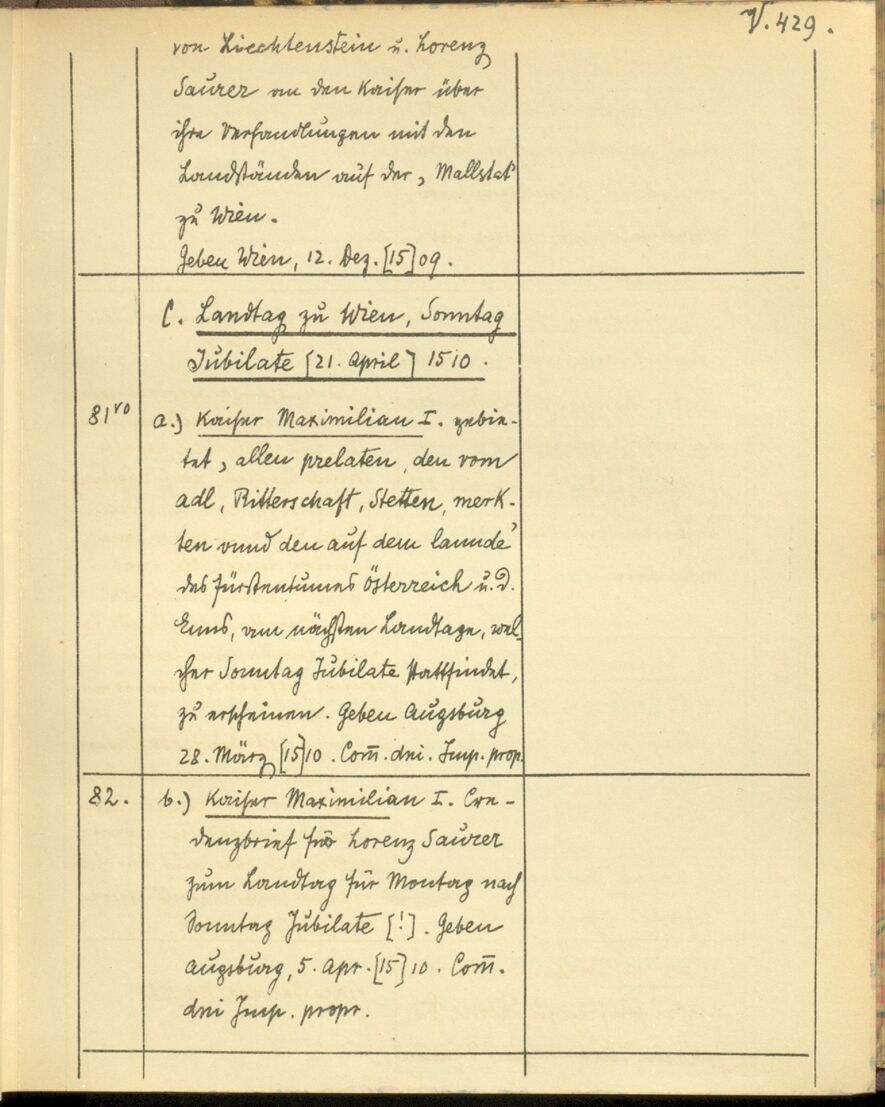 V. 429.
von Liechtenstein u. Lorenz
Saurer an den Kaiser über
ihre Verhandlungen mit den
Landständen auf der „Mallstat"
zu Wien.
Geben Wien, 12. Dez. [15]09.
C. Landtag zu Wien, Sonntag
Jubilate [21. April] 1510.
81ro a.) Kaiser Maximilian I. gebie-
tet „allen prelaten, den vom
adl, Ritterschaft, Stetten, merk-
ten vnnd den auf dem lannde"
des Fürstentumes Österreich u. d.
Enns, am nächsten Landtage, wel-
cher Sonntag Jubilate stattfindet,
zu erscheinen. Geben Augsburg
28. März [15]10. Com̄. dni. Imp. prop.
82. b.) Kaiser Maximilian I. Cre-
denzbrief für Lorenz Saurer
zum Landtag für Montag nach
Sonntag Jubilate [!]. Geben
Augsburg, 5. Apr. [15]10. Com̄.
dni Imp. propr.